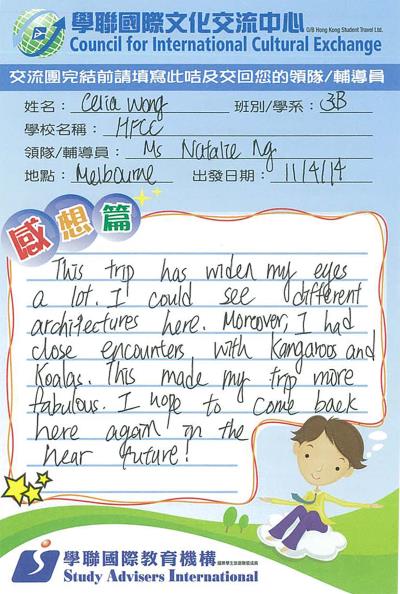 學聯國際文化交流中心 O/B Hong Kong Student Travel Ltd.
Council for International Cultural Exchange
交流團完結前請填寫此咭及交回您的領隊/輔導員
姓名: Celia Wong 班別/學系: 3B
學校名稱: HFCC
領隊/輔導員: Ms Natalie Ng
地點: Melbourne 出發日期: 11/4/14
感想篇
This trip has widen my eyes
a lot. I could see different
architectures here. Moreover, I had
close encounters with Kangaroos and
Koalas. This made my trip more
fabulous. I hope to come back
here again in the
near future!
學聯國際教育機構
Study Advisers International